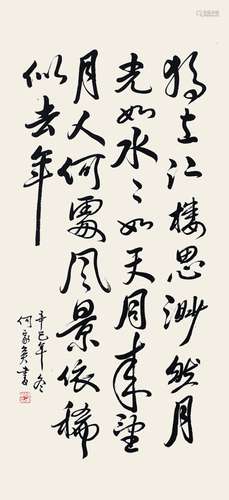 獨上江樓思渺然月
光如水〻如天同来望
月人何處風景依稀
似去年
辛巳年冬
何家英書